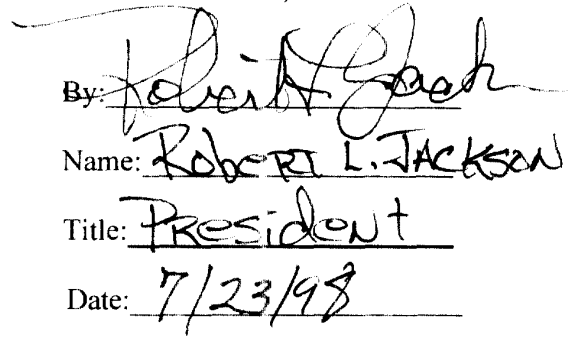 By: Robert
Name: Robert L. JACKSON
Title: President
Date: 7/23/98